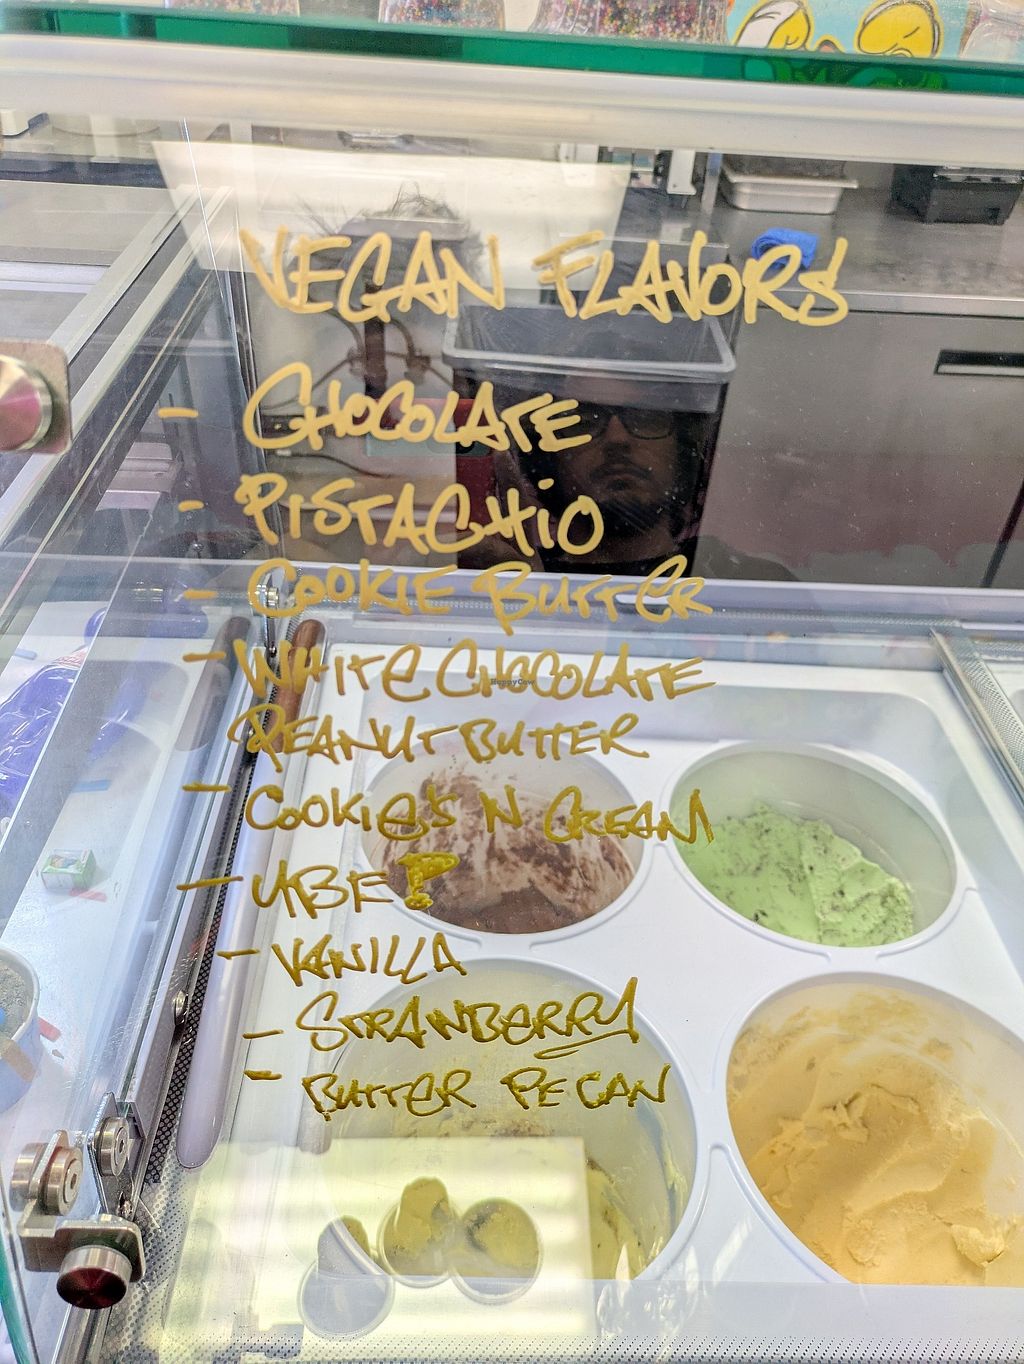 VEGAN FLAVORS
- CHOCOLATE
- PISTACHIO
- COOKIE BUTTER
- WHITE CHOCOLATE
PEANUT BUTTER
- COOKIES N CREAM
- UBE!
- VANILLA
- STRAWBERRY
- BUTTER PECAN
HappyCow